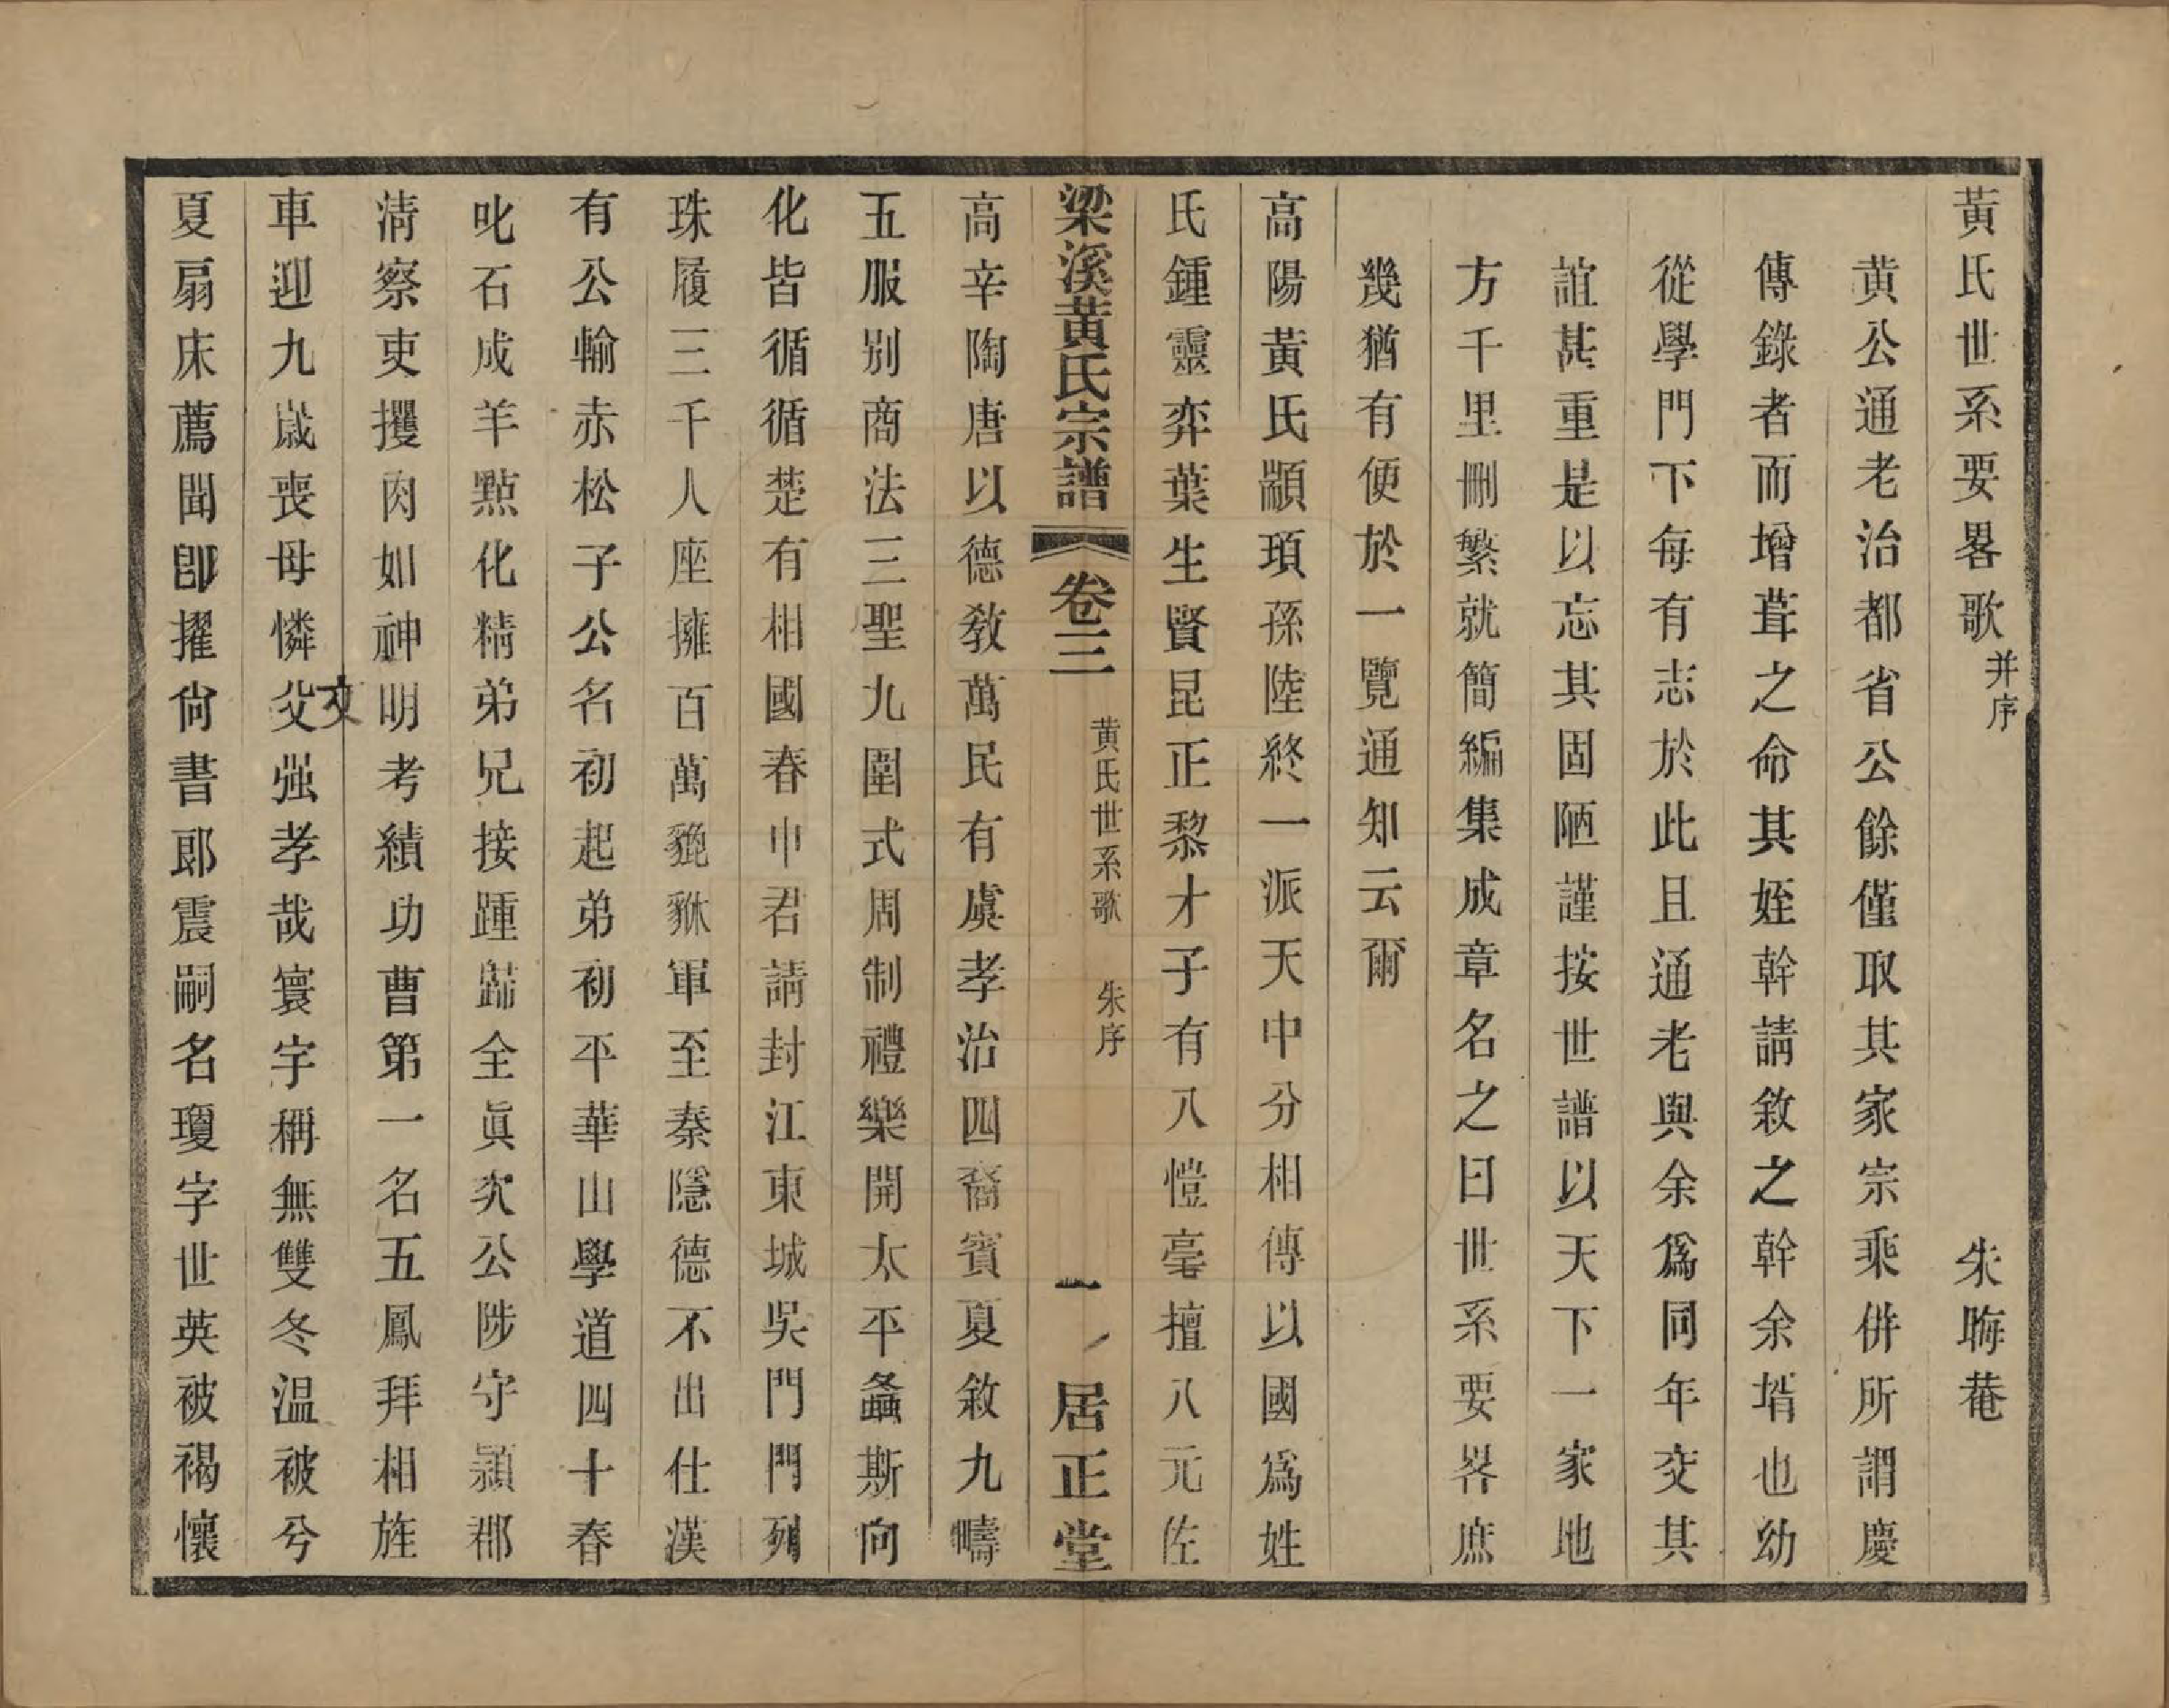 黃氏世系要畧歌并序 朱晦菴
黄公通老治都省公餘僅取其家宗乘併所謂慶
傳錄者而增葺之命其姪幹請敘之幹余壻也幼
從學門下每有志於此且通老與余爲同年交其
誼甚重是以忘其固陋謹按世譜以天下一家地
方千里刪繁就簡編集成章名之曰世系要畧庶
幾猶有便於一覽通知云爾
高陽黃氏顓頊孫陸終一派天中分相傳以國爲姓
氏鍾靈弈葉生賢昆正黎才子有八愷毫擅八元佐
梁溪黃氏宗譜 卷三 黄氏世系歌 朱序 一 居正堂
高辛陶唐以德敎萬民有虞孝治四裔賓夏敘九疇
五服别商法三聖九圍式周制禮樂開太平螽斯向
化皆循循楚有相國春申君請封江東城吳門門列
珠履三千人座擁百萬貔貅軍至秦隱德不出仕漢
有公輸赤松子公名初起弟初平華山學道四十春
叱石成羊點化精弟兄接踵歸全眞次公陟守潁郡
淸察吏攫肉如神明考績功曹第一名五鳳拜相旌
車迎九歲喪母憐父文强孝哉寰宇稱無雙冬温被兮
夏扇床薦聞卽擢尙書郞震嗣名瓊字世英被褐懷